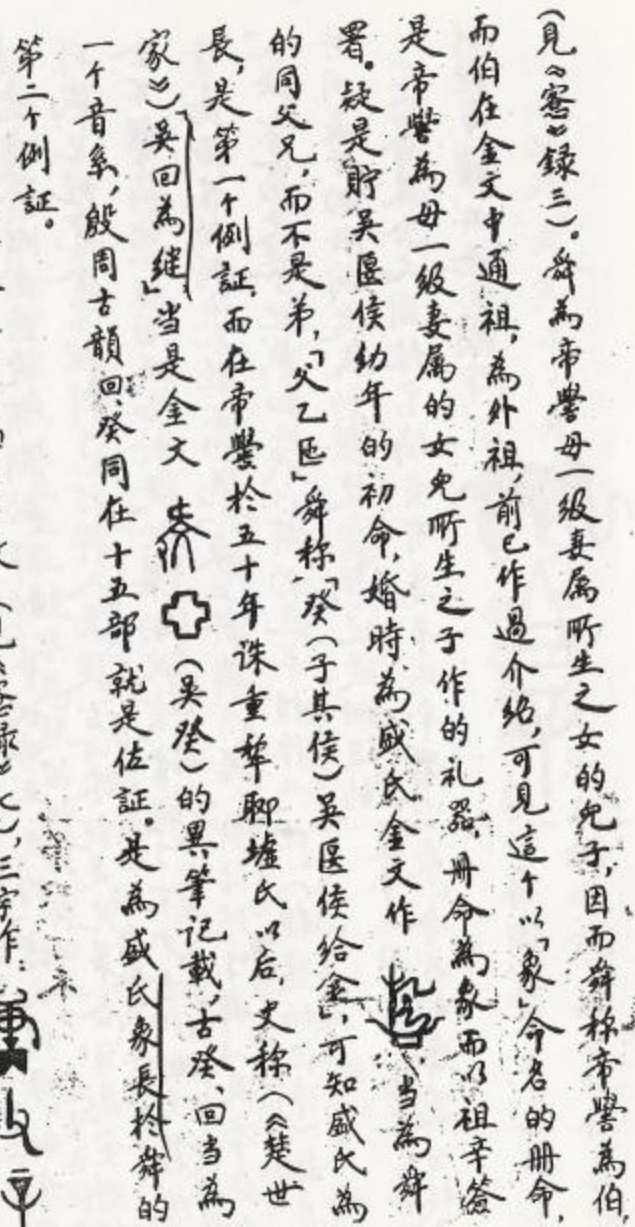 (见《窓》録三)。舜為帝嚳母一级妻属所生之女的兒子,因而舜称帝嚳為伯,
而伯在金文中通祖,為外祖,前已作過介紹,可見這个以「象」命名的册命,
是帝嚳為母一级妻属的女兒所生之子作的礼器,册命為象而以祖辛簽
署。疑是貯吴匽侯幼年的初命,婚時為威氏金文作 当為舜
的同父兄,而不是弟,「父乙匜」舜称,「癸(子其侯)吴匽侯给金」,可知威氏為
長,是第一个例証,而在帝嚳於五十年诛重犂聊墟氏以后,史称(《楚世
家》)吴回為继」当是金文 (吴癸)的異筆記載,古癸、回当為
一个音系,殷周古韻回、癸同在十五部 就是佐証。是為威氏象長於舜的
第二个例証。
三字作: